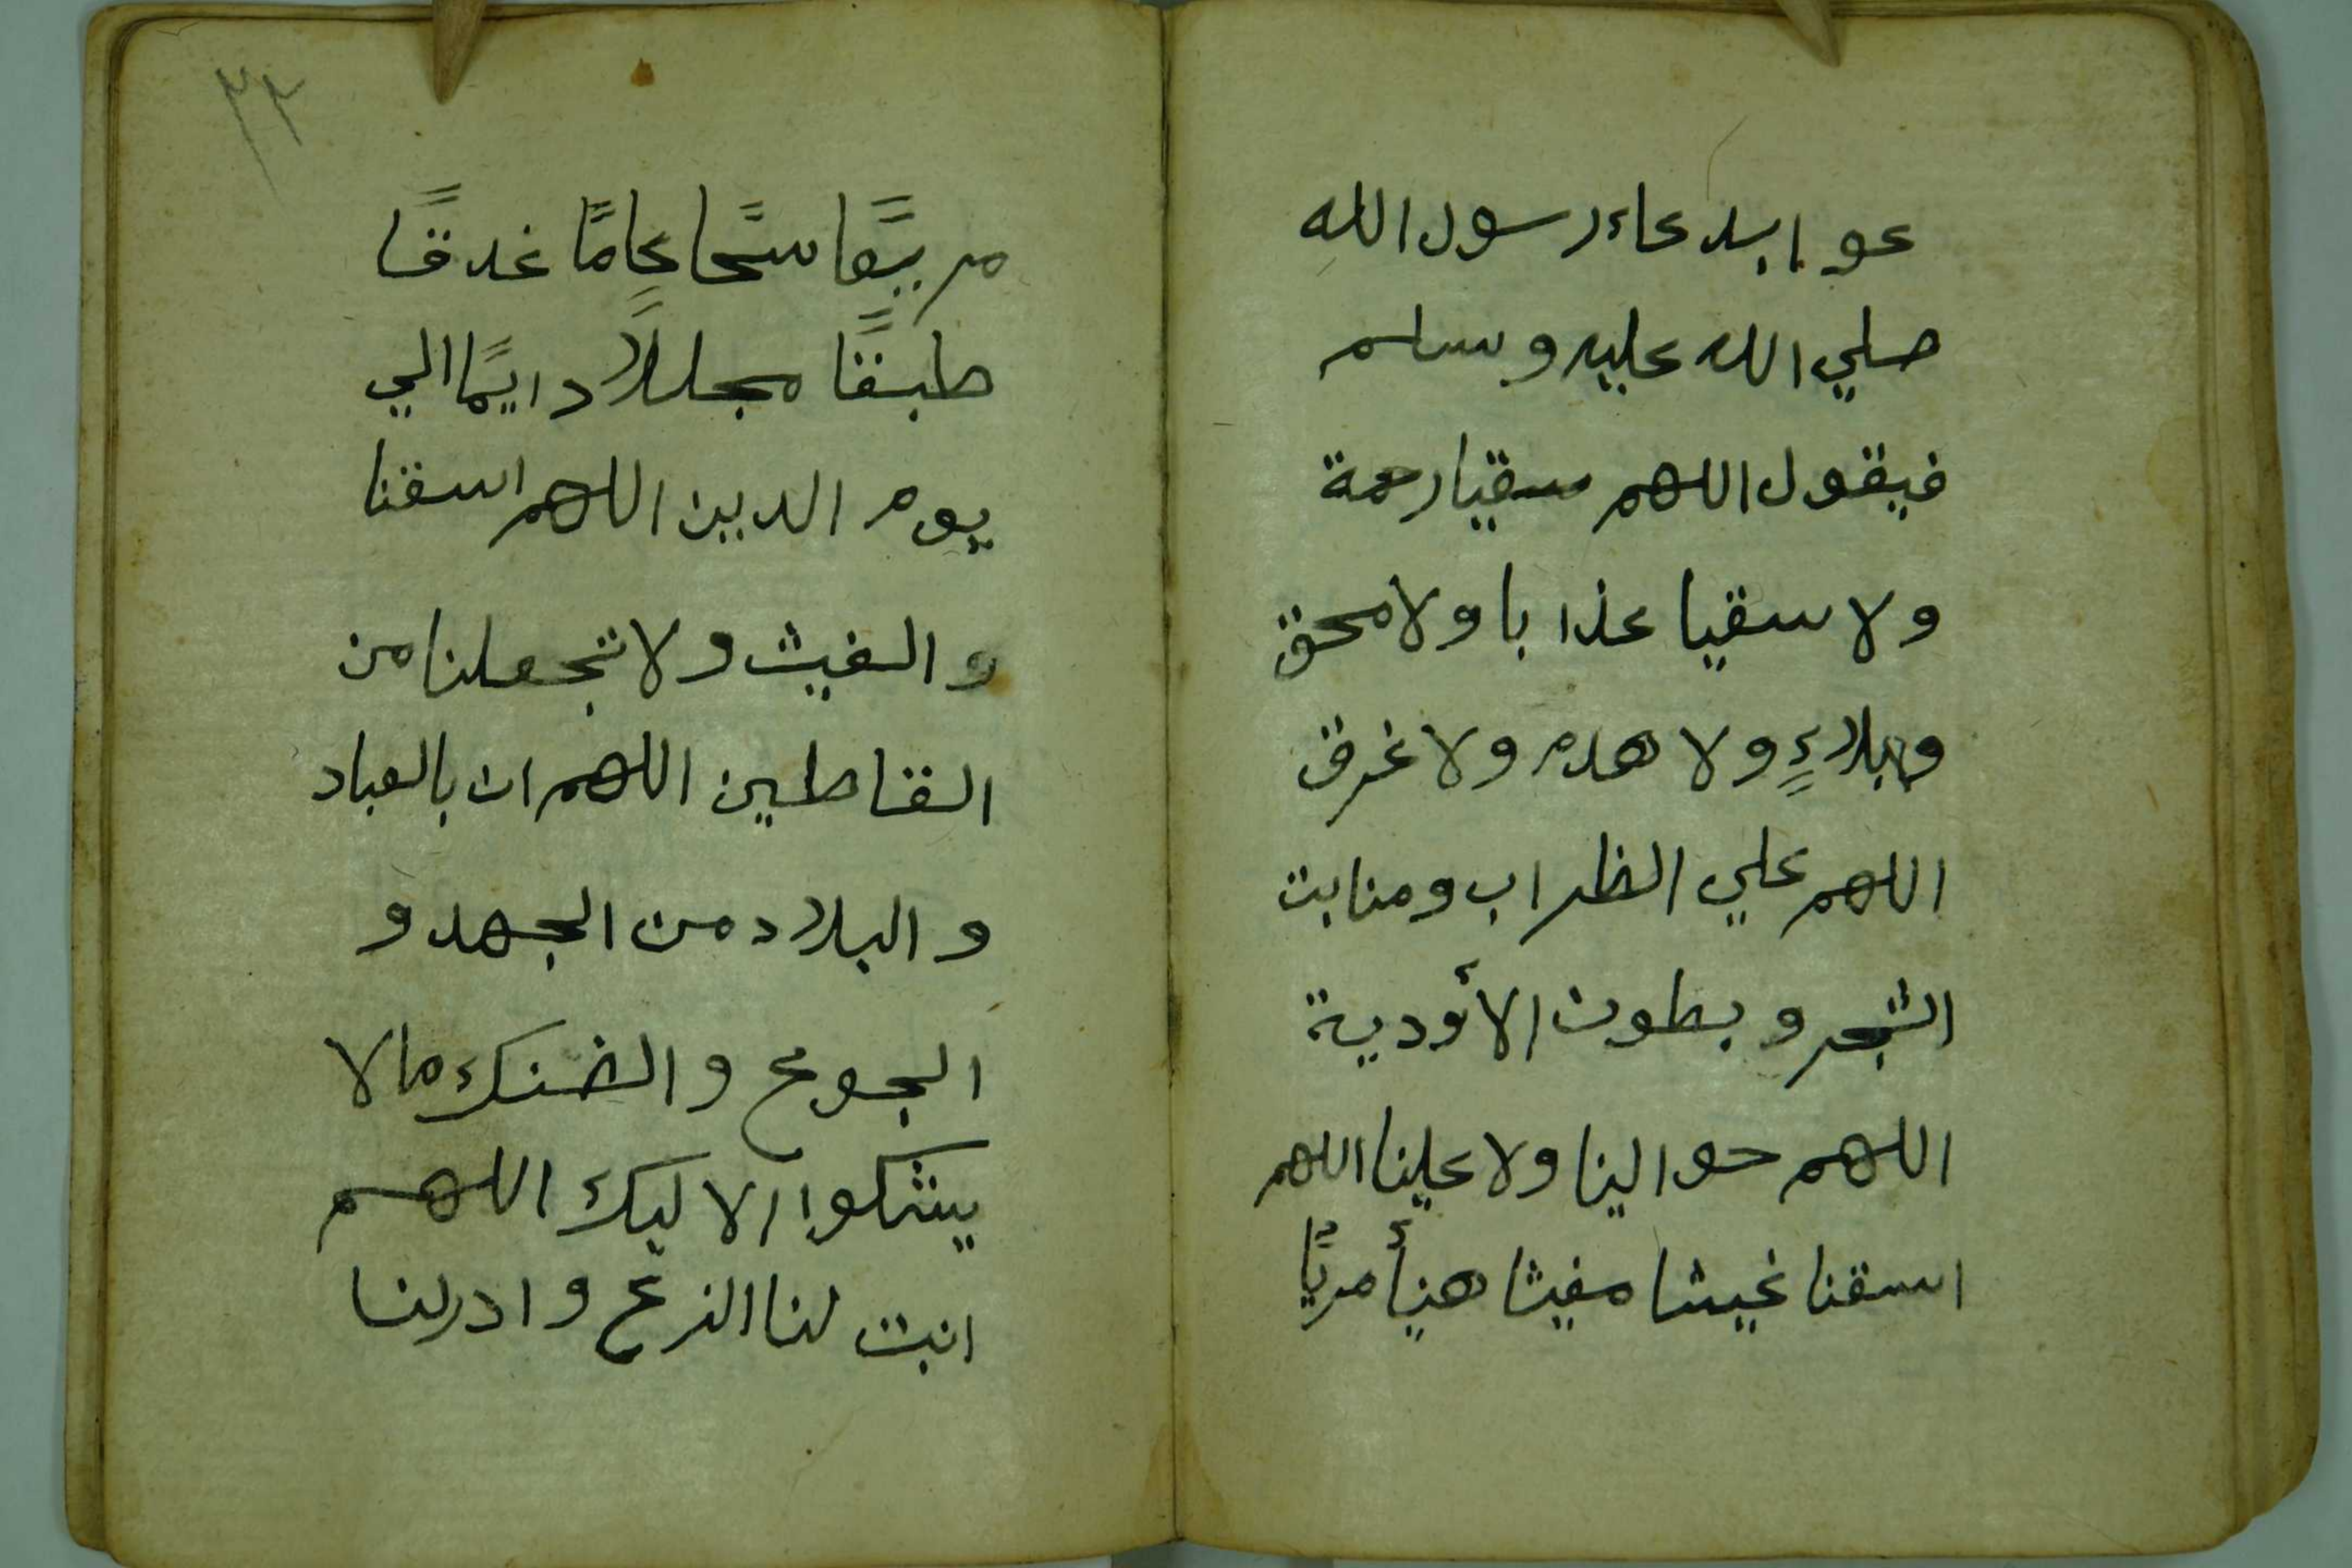 عو ابدعاء رسول الله
صلي الله عليه وسلم
فيقول اللهم سقيا رحمة
ولا سقيا عذابا ولا محق
ولابلاءٍ ولا هدم ولا غرق
اللهم علي الظراب ومنابت
الشجر وبطون الأودية
اللهم حوالينا ولا علينا اللهم
اسقنا غيثا مغيثا هنيأ مريًا
٣٣
مريعًا سحًا عامًا غدقًا
طبقًا مجللاً دايمًا الي
يوم الدين اللهم اسقنا
والغيث ولا تجعلنا من
القاطين اللهم ان بالعباد
والبلاد من الجهد و
الجوع والضنك مالا
يشكوا الا ليك اللهم
انبت لنا الزرع وادرلنا